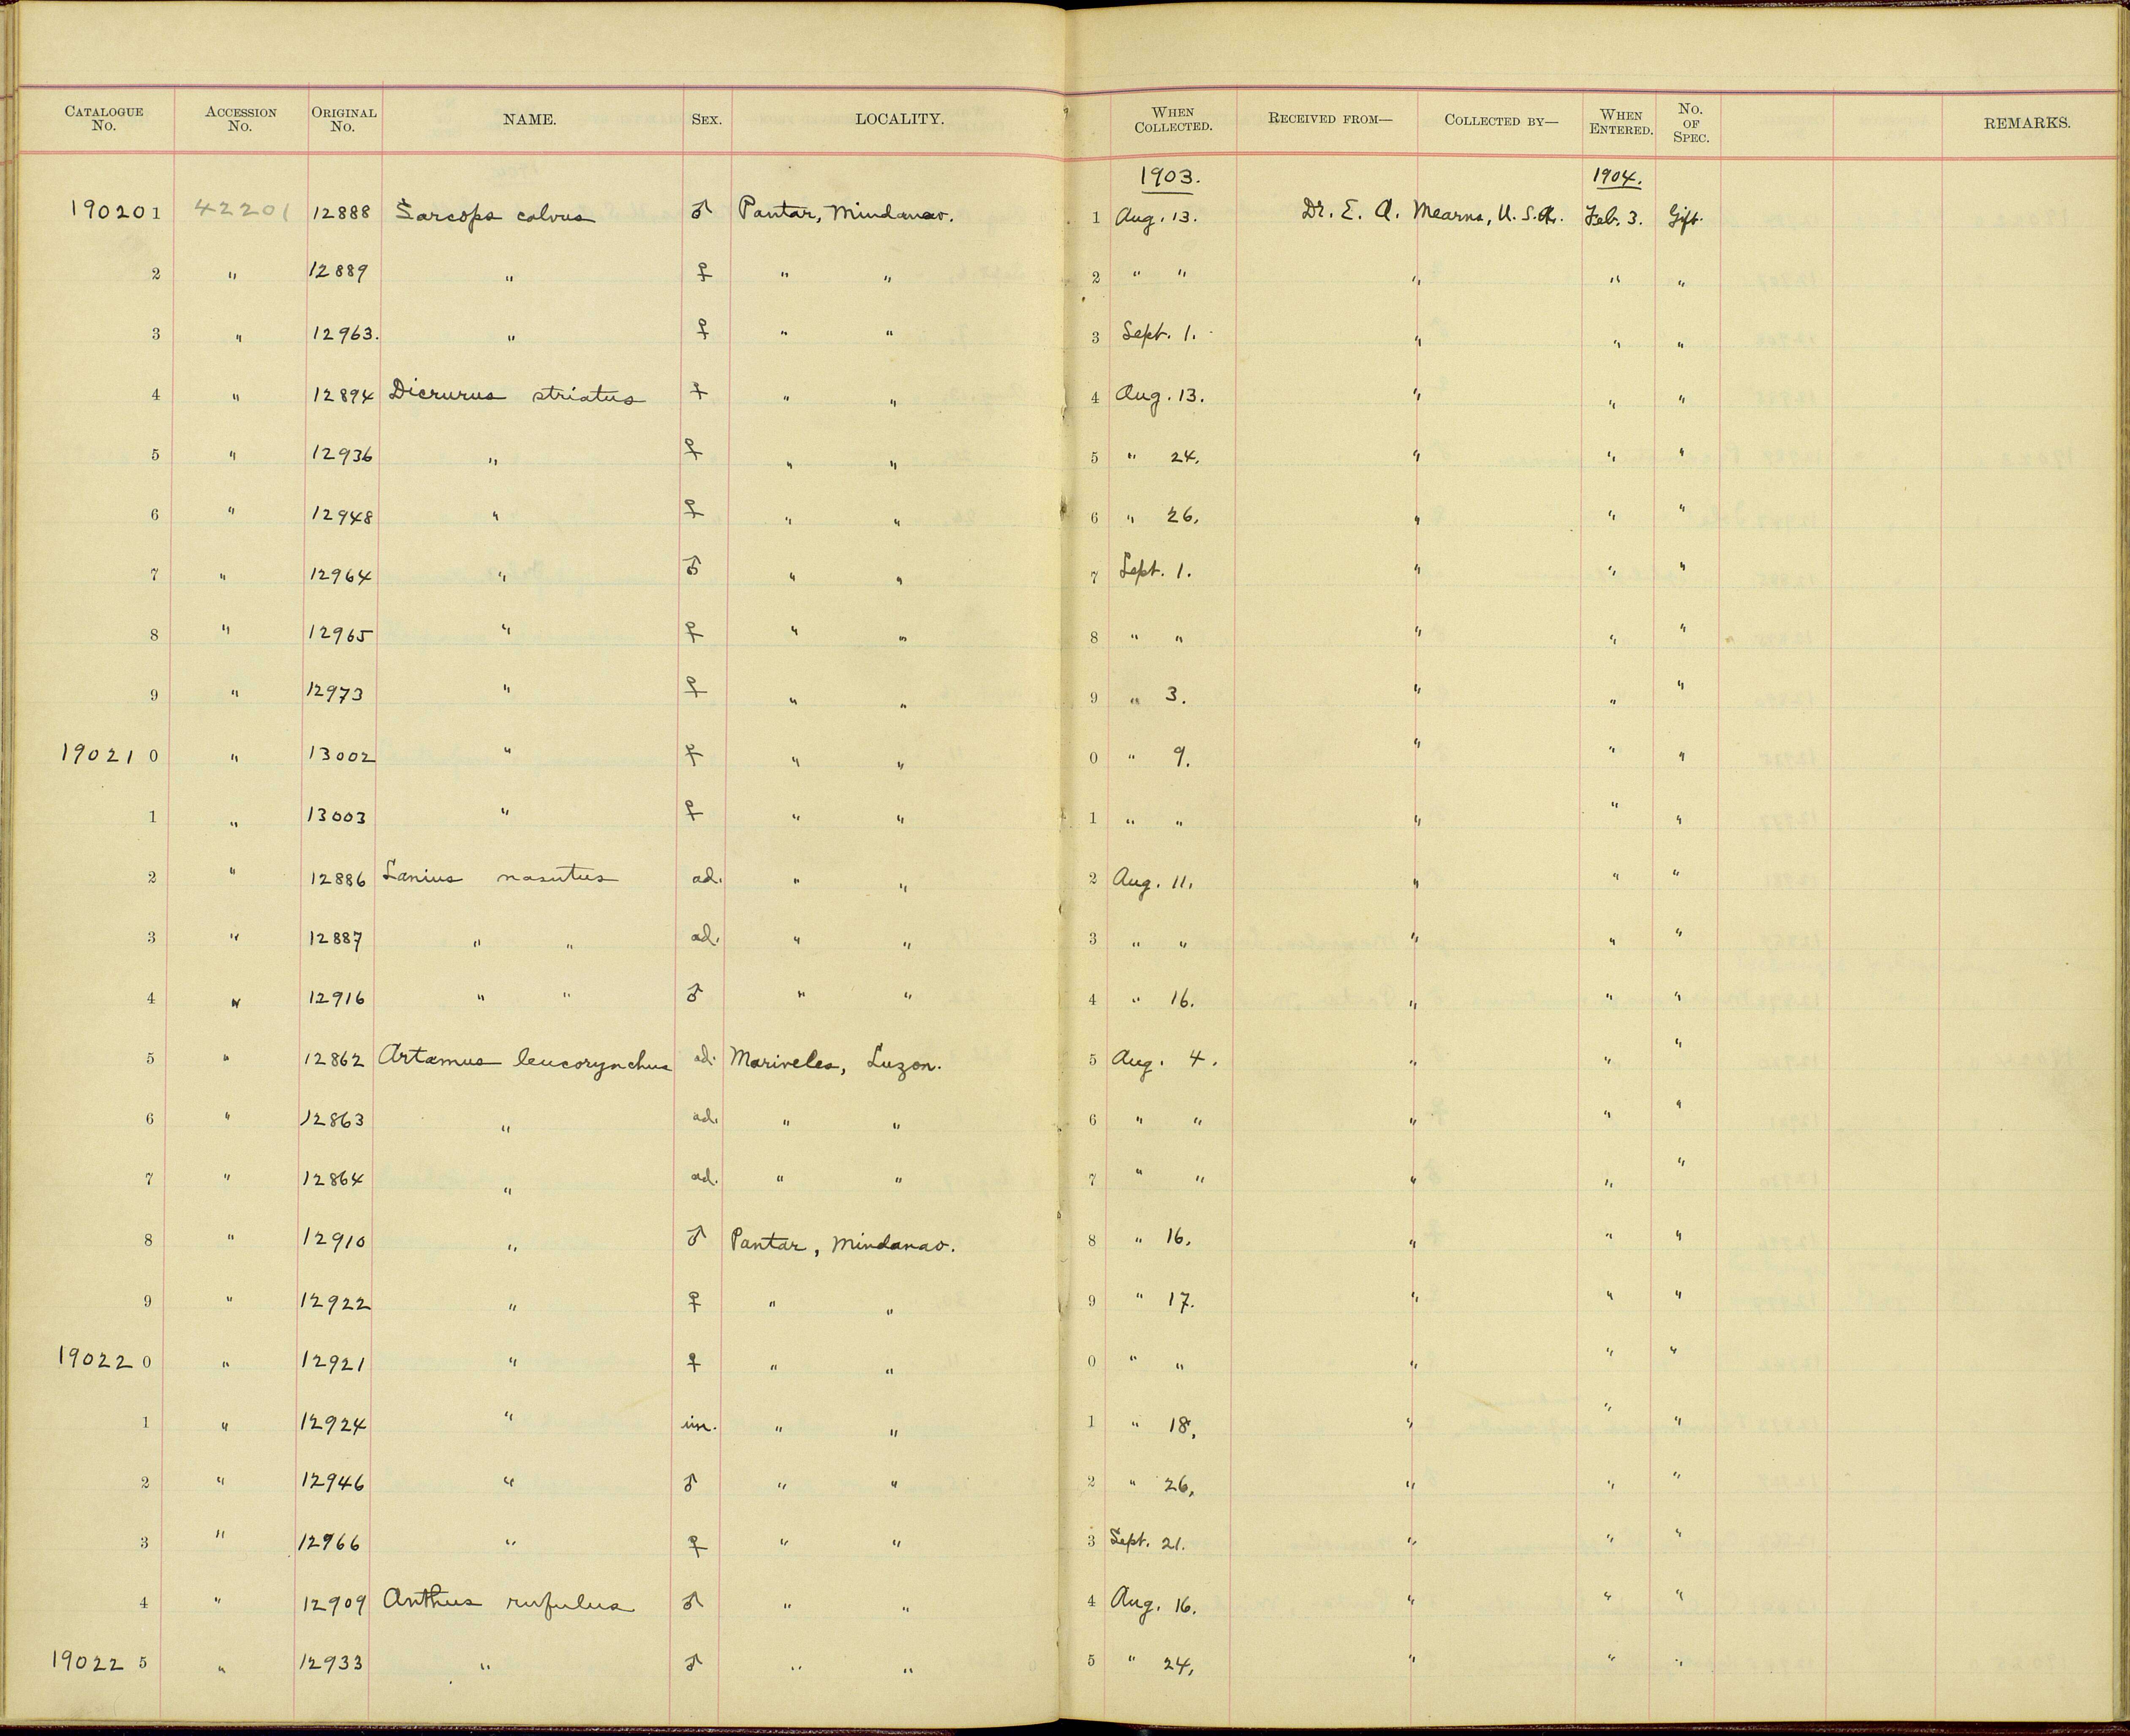 CATALOGUE No. ACCESSION No. ORIGINAL No. NAME. SEX. LOCALITY. WHEN COLLECTED. RECEIVED FROM— COLLECTED BY— WHEN ENTERED. No. OF SPEC. REMARKS.
1903. 1904.
190201 42201 12888 Sarcops calvus ♂ Pantar, Mindanao. 1 Aug. 13. Dr. E. A. Mearns, U.S.A. Feb. 3. Gift.
2 " 12889 " ♀ " " 2 " " " " "
3 " 12963. " ♀ " " 3 Sept. 1. " " "
4 " 12894 Dicrurus striatus ♀ " " 4 Aug. 13. " " "
5 " 12936 " ♀ " " 5 " 24. " " "
6 " 12948 " ♀ " " 6 " 26. " " "
7 " 12964 " ♂ " " 7 Sept. 1. " " "
8 " 12965 " ♀ " " 8 " " " " "
9 " 12973 " ♀ " " 9 " 3. " " "
190210 " 13002 " ♀ " " 0 " 9. " " "
1 " 13003 " ♀ " " 1 " " " " "
2 " 12886 Lanius nasutus ad. " " 2 Aug. 11. " " "
3 " 12887 " " ad. " " 3 " " " " "
4 " 12916 " " ♂ " " 4 " 16. " " "
5 " 12862 Artamus leucorynchus ad. Mariveles, Luzon. 5 Aug. 4. " " "
6 " 12863 " ad. " " 6 " " " " "
7 " 12864 " ad. " " 7 " " " " "
8 " 12910 " ♂ Pantar, Mindanao. 8 " 16. " " "
9 " 12922 " ♀ " " 9 " 17. " " "
190220 " 12921 " ♀ " " 0 " " " " "
1 " 12924 " im. " " 1 " 18. " " "
2 " 12946 " ♂ " " 2 " 26. " " "
3 " 12966 " ♀ " " 3 Sept. 21. " " "
4 " 12909 Anthus rufulus ♂ " " 4 Aug. 16. " " "
190225 " 12933 " ♂ " " 5 " 24. " " "